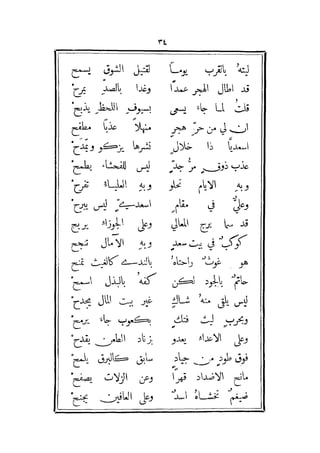 ٣٤
ليتهُ بالقرب يومـًا لقتيل الشوق يسمح
قد اطال الهجر عمدًا وغدا بالصدّ يمرح
قلتُ لمـا جاءَ يسعى بسيوف اللحظ يذبح
ان لي من حرّ هجرٍ منهلاً عذبًا مطفح
اسعديًا ذا خلالٍ نشرها يزكو ويُمدَح
عذب ذوقٍ مرُّ جدٍّ ليس للفحشاءِ يطمح
وبهِ الايام تحلو وبهِ العليـاءُ تفرح
وعليٌّ في مقامٍ اسعديٍّ ليس يبرح
قد سما برج المعالي وعلى الجوزاءِ يربح
كوكبٌ في بيت سعدٍ وبهِ الآمال تنجح
هو غوثٌ راحتاهُ بالندى كالغيث تمنح
حاتمٌ بالجود لكن كفهُ بالبذل اسمح
ليس يلقى منهُ شـاكٍ غير بيت المال يجدح
وبحربٍ ليث فتكٍ بكعوب جاءَ يرمح
وعلى الاعداءِ يعدو بزناد الطعن يقدح
فوق طودٍ من جيادٍ سابق كالبرق يلمح
مانح الاضداد قهرًا وعن الزلات يصفح
ضيغمٌ تخشـاهُ اسدٌ وعلى العافين يجنح